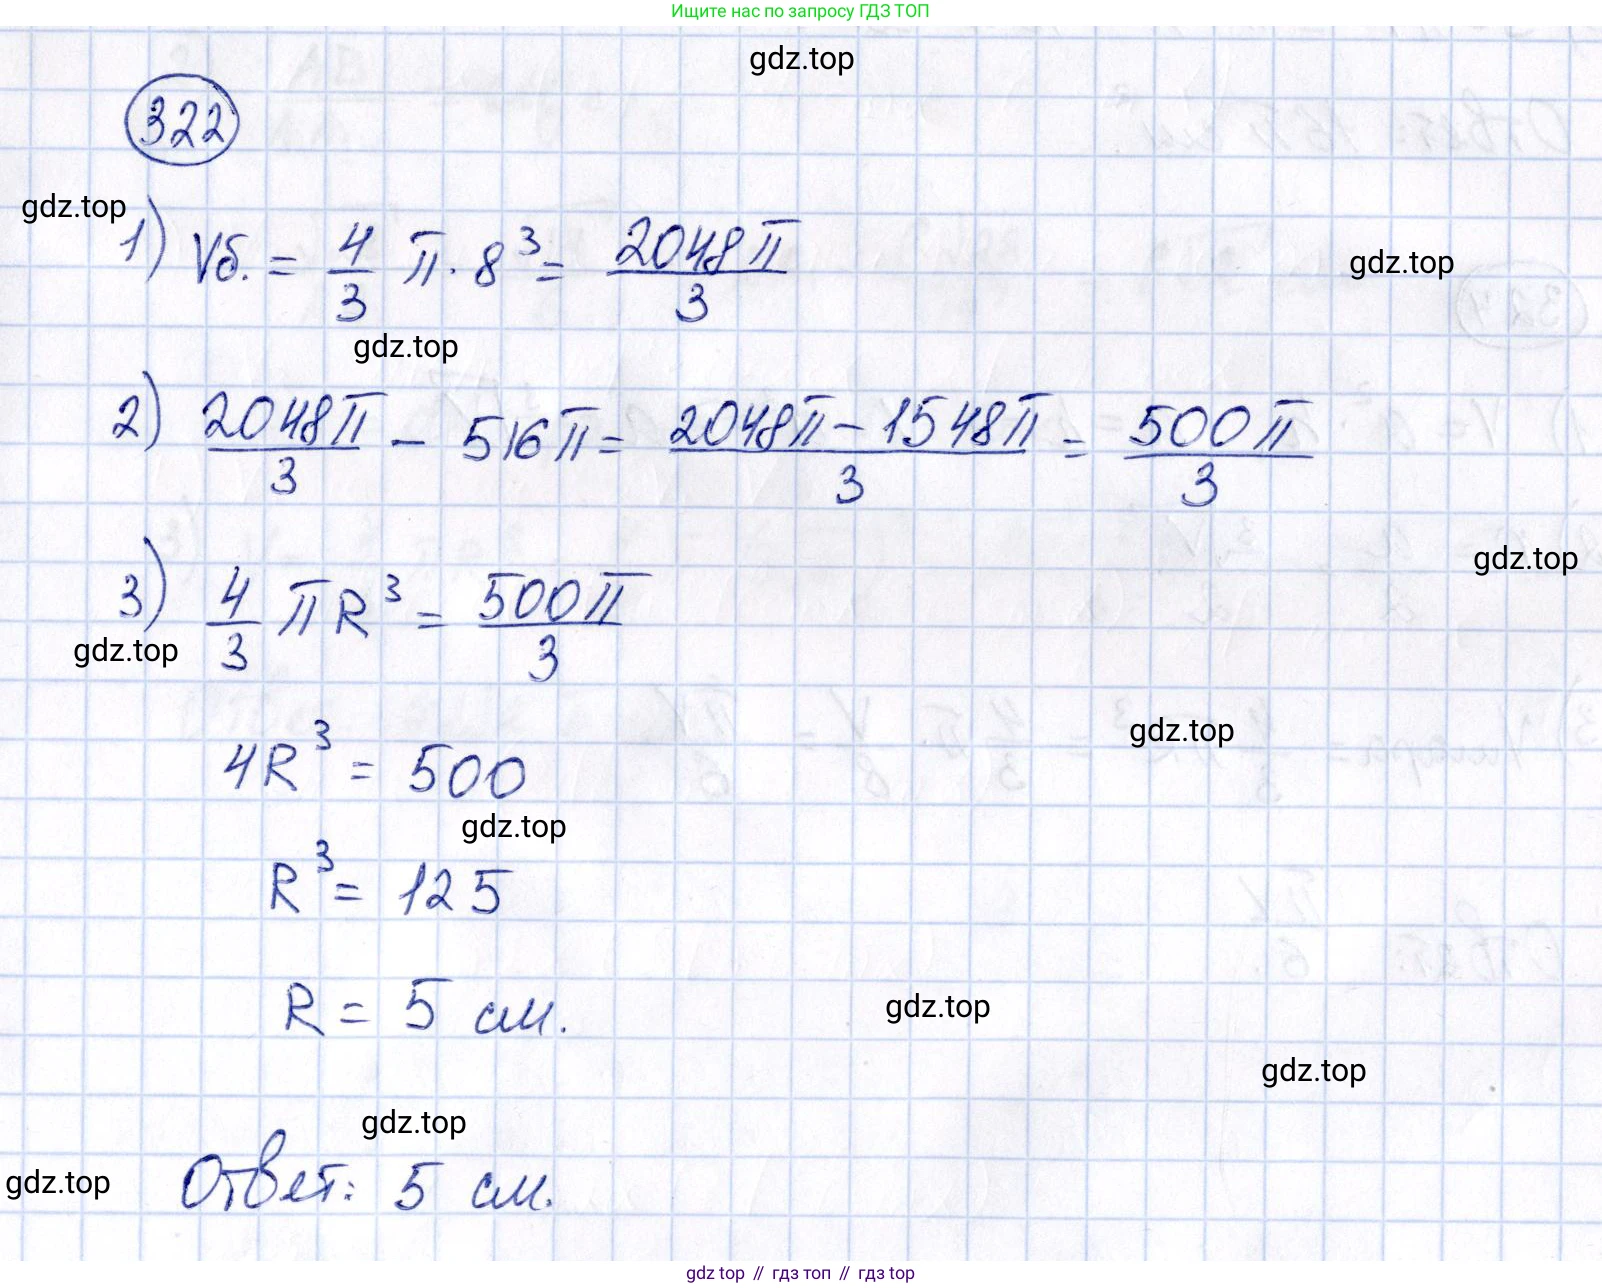 Ищите нас по запросу ГДЗ ТОП
gdz.top
322
gdz.top
1) Vб. = 4/3 π · 8³ = 2048π/3
gdz.top
gdz.top
2) 2048π/3 - 516π = (2048π - 1548π)/3 = 500π/3
gdz.top
3) 4/3 πR³ = 500π/3
gdz.top
gdz.top
4R³ = 500
gdz.top
R³ = 125
R = 5 см.
gdz.top
gdz.top
gdz.top
gdz.top
Ответ: 5 см.
gdz top // гдз топ // гдз top